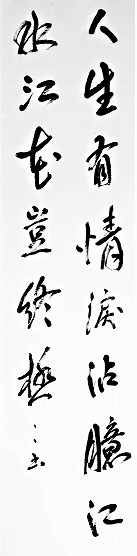 人生有情淚沾臆江
水江花豈終極